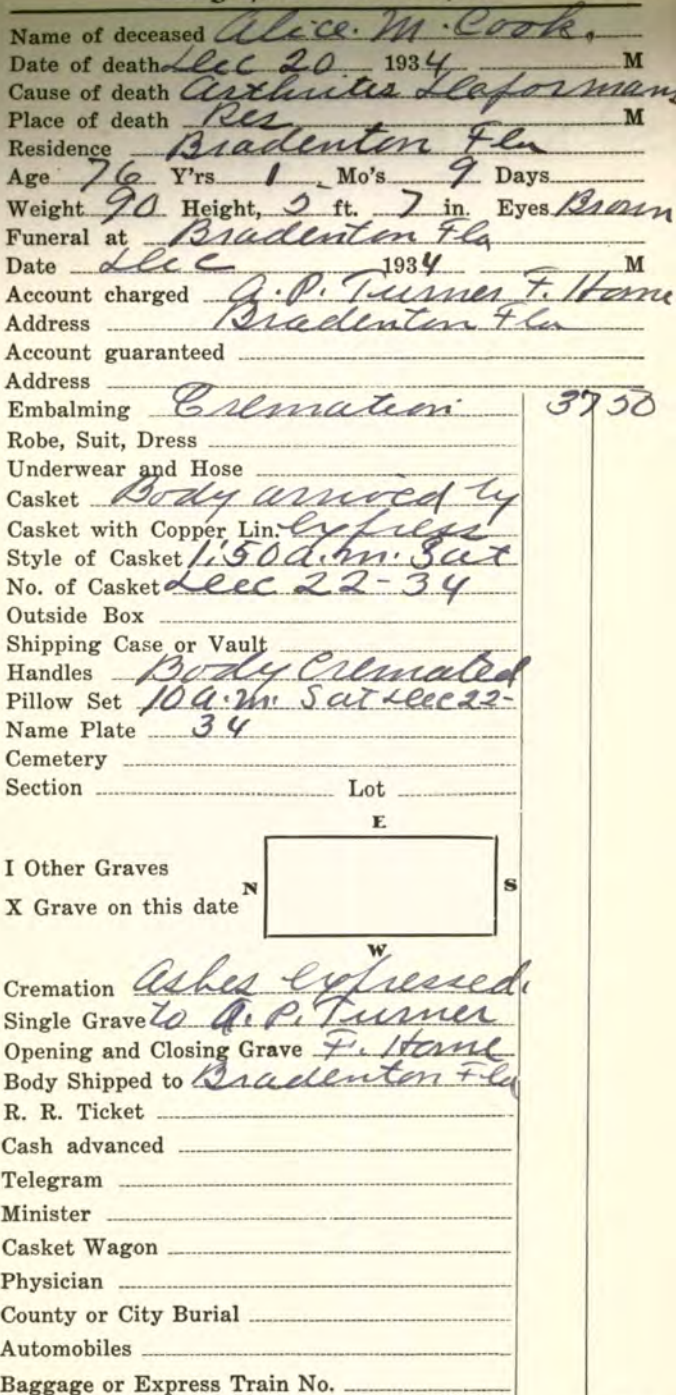 Name of deceased Alice. M. Cook.
Date of death Dec 20 1934 M
Cause of death Arthrites Deformans
Place of death Res M
Residence Bradenton Fla
Age 76 Y'rs 1 Mo's 9 Days
Weight 90 Height, 5 ft. 7 in. Eyes Brown
Funeral at Bradenton Fla
Date Dec 1934 M
Account charged A. P. Turner F. Home
Address Bradenton Fla
Account guaranteed
Address
Embalming Cremation 37 50
Robe, Suit, Dress
Underwear and Hose
Casket Body arrived by
Casket with Copper Lin. express
Style of Casket 1:50 a.m. Sat
No. of Casket Dec 22-34
Outside Box
Shipping Case or Vault
Handles Body Cremated
Pillow Set 10 a.m. Sat Dec 22-
Name Plate 34
Cemetery
Section Lot
E
I Other Graves
N S
X Grave on this date
W
Cremation Ashes expressed.
Single Grave to A. P. Turner
Opening and Closing Grave F. Home
Body Shipped to Bradenton Fla
R. R. Ticket
Cash advanced
Telegram
Minister
Casket Wagon
Physician
County or City Burial
Automobiles
Baggage or Express Train No.